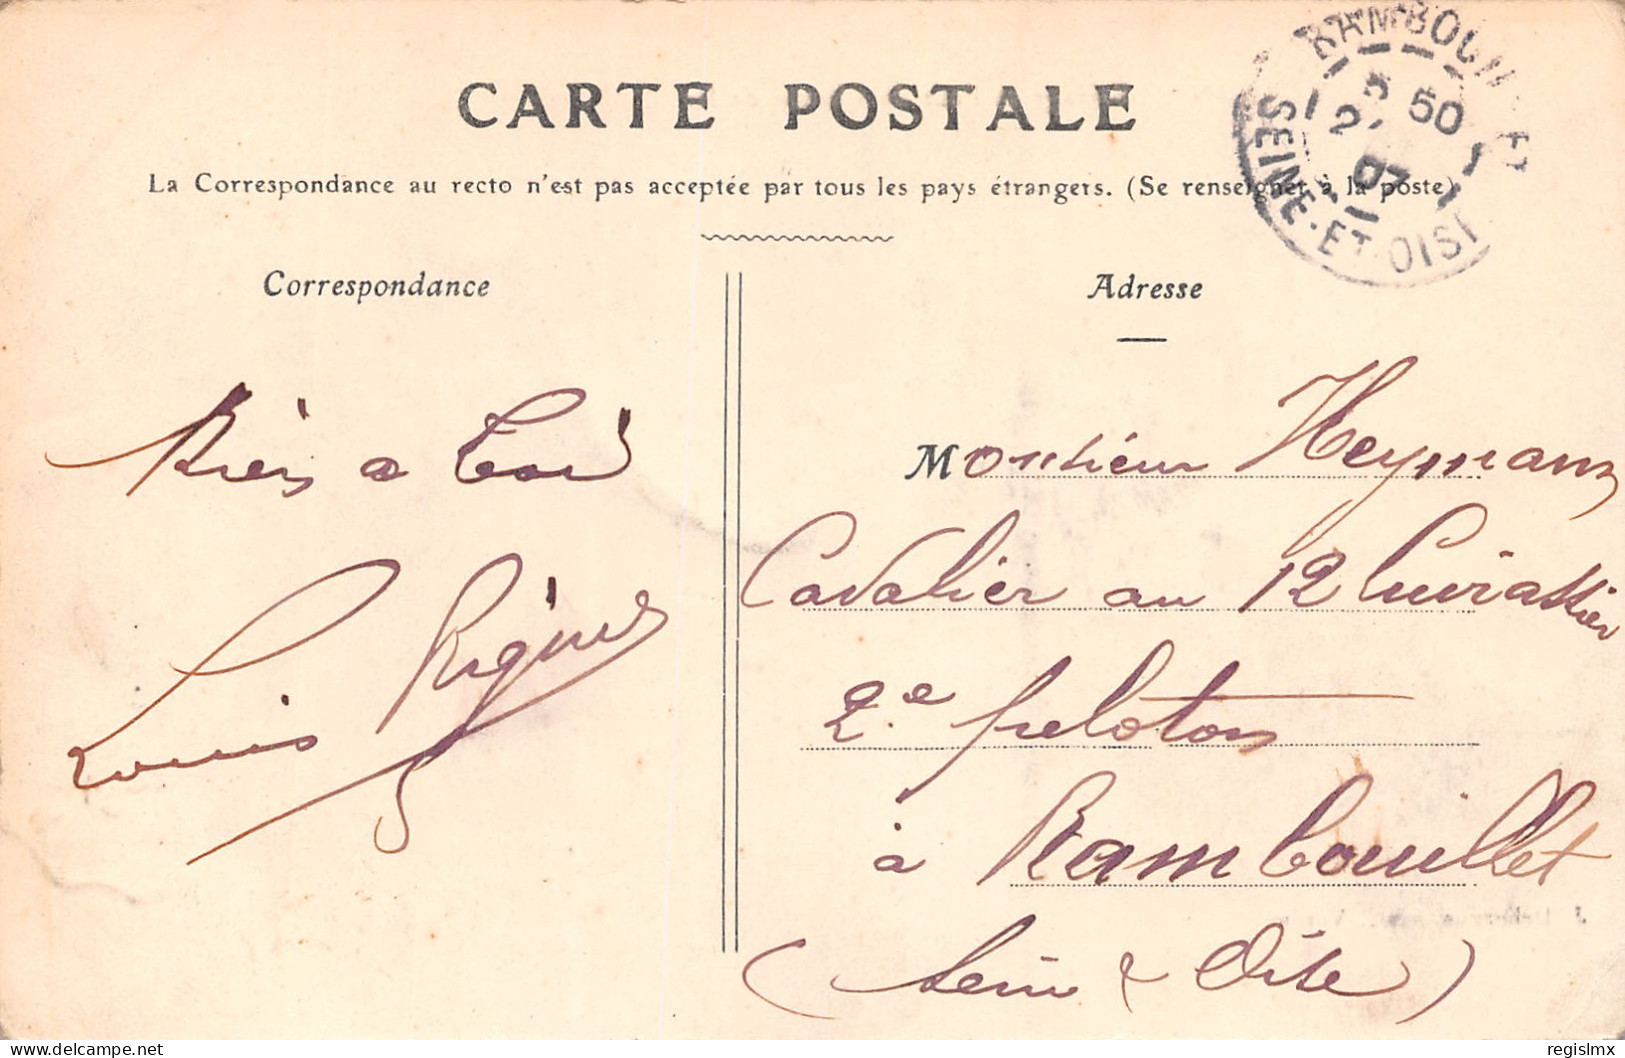 CARTE POSTALE
La Correspondance au recto n'est pas acceptée par tous les pays étrangers. (Se renseigner à la poste)
SEINE-ET-OISE
5 50
07
Correspondance
Adresse
Bien à toi
Louis
Monsieur Heymann
Cavalier au 12 Cuirassier
2e peloton
à Rambouillet
(Seine & Oise)
delcampe.net
regislmx